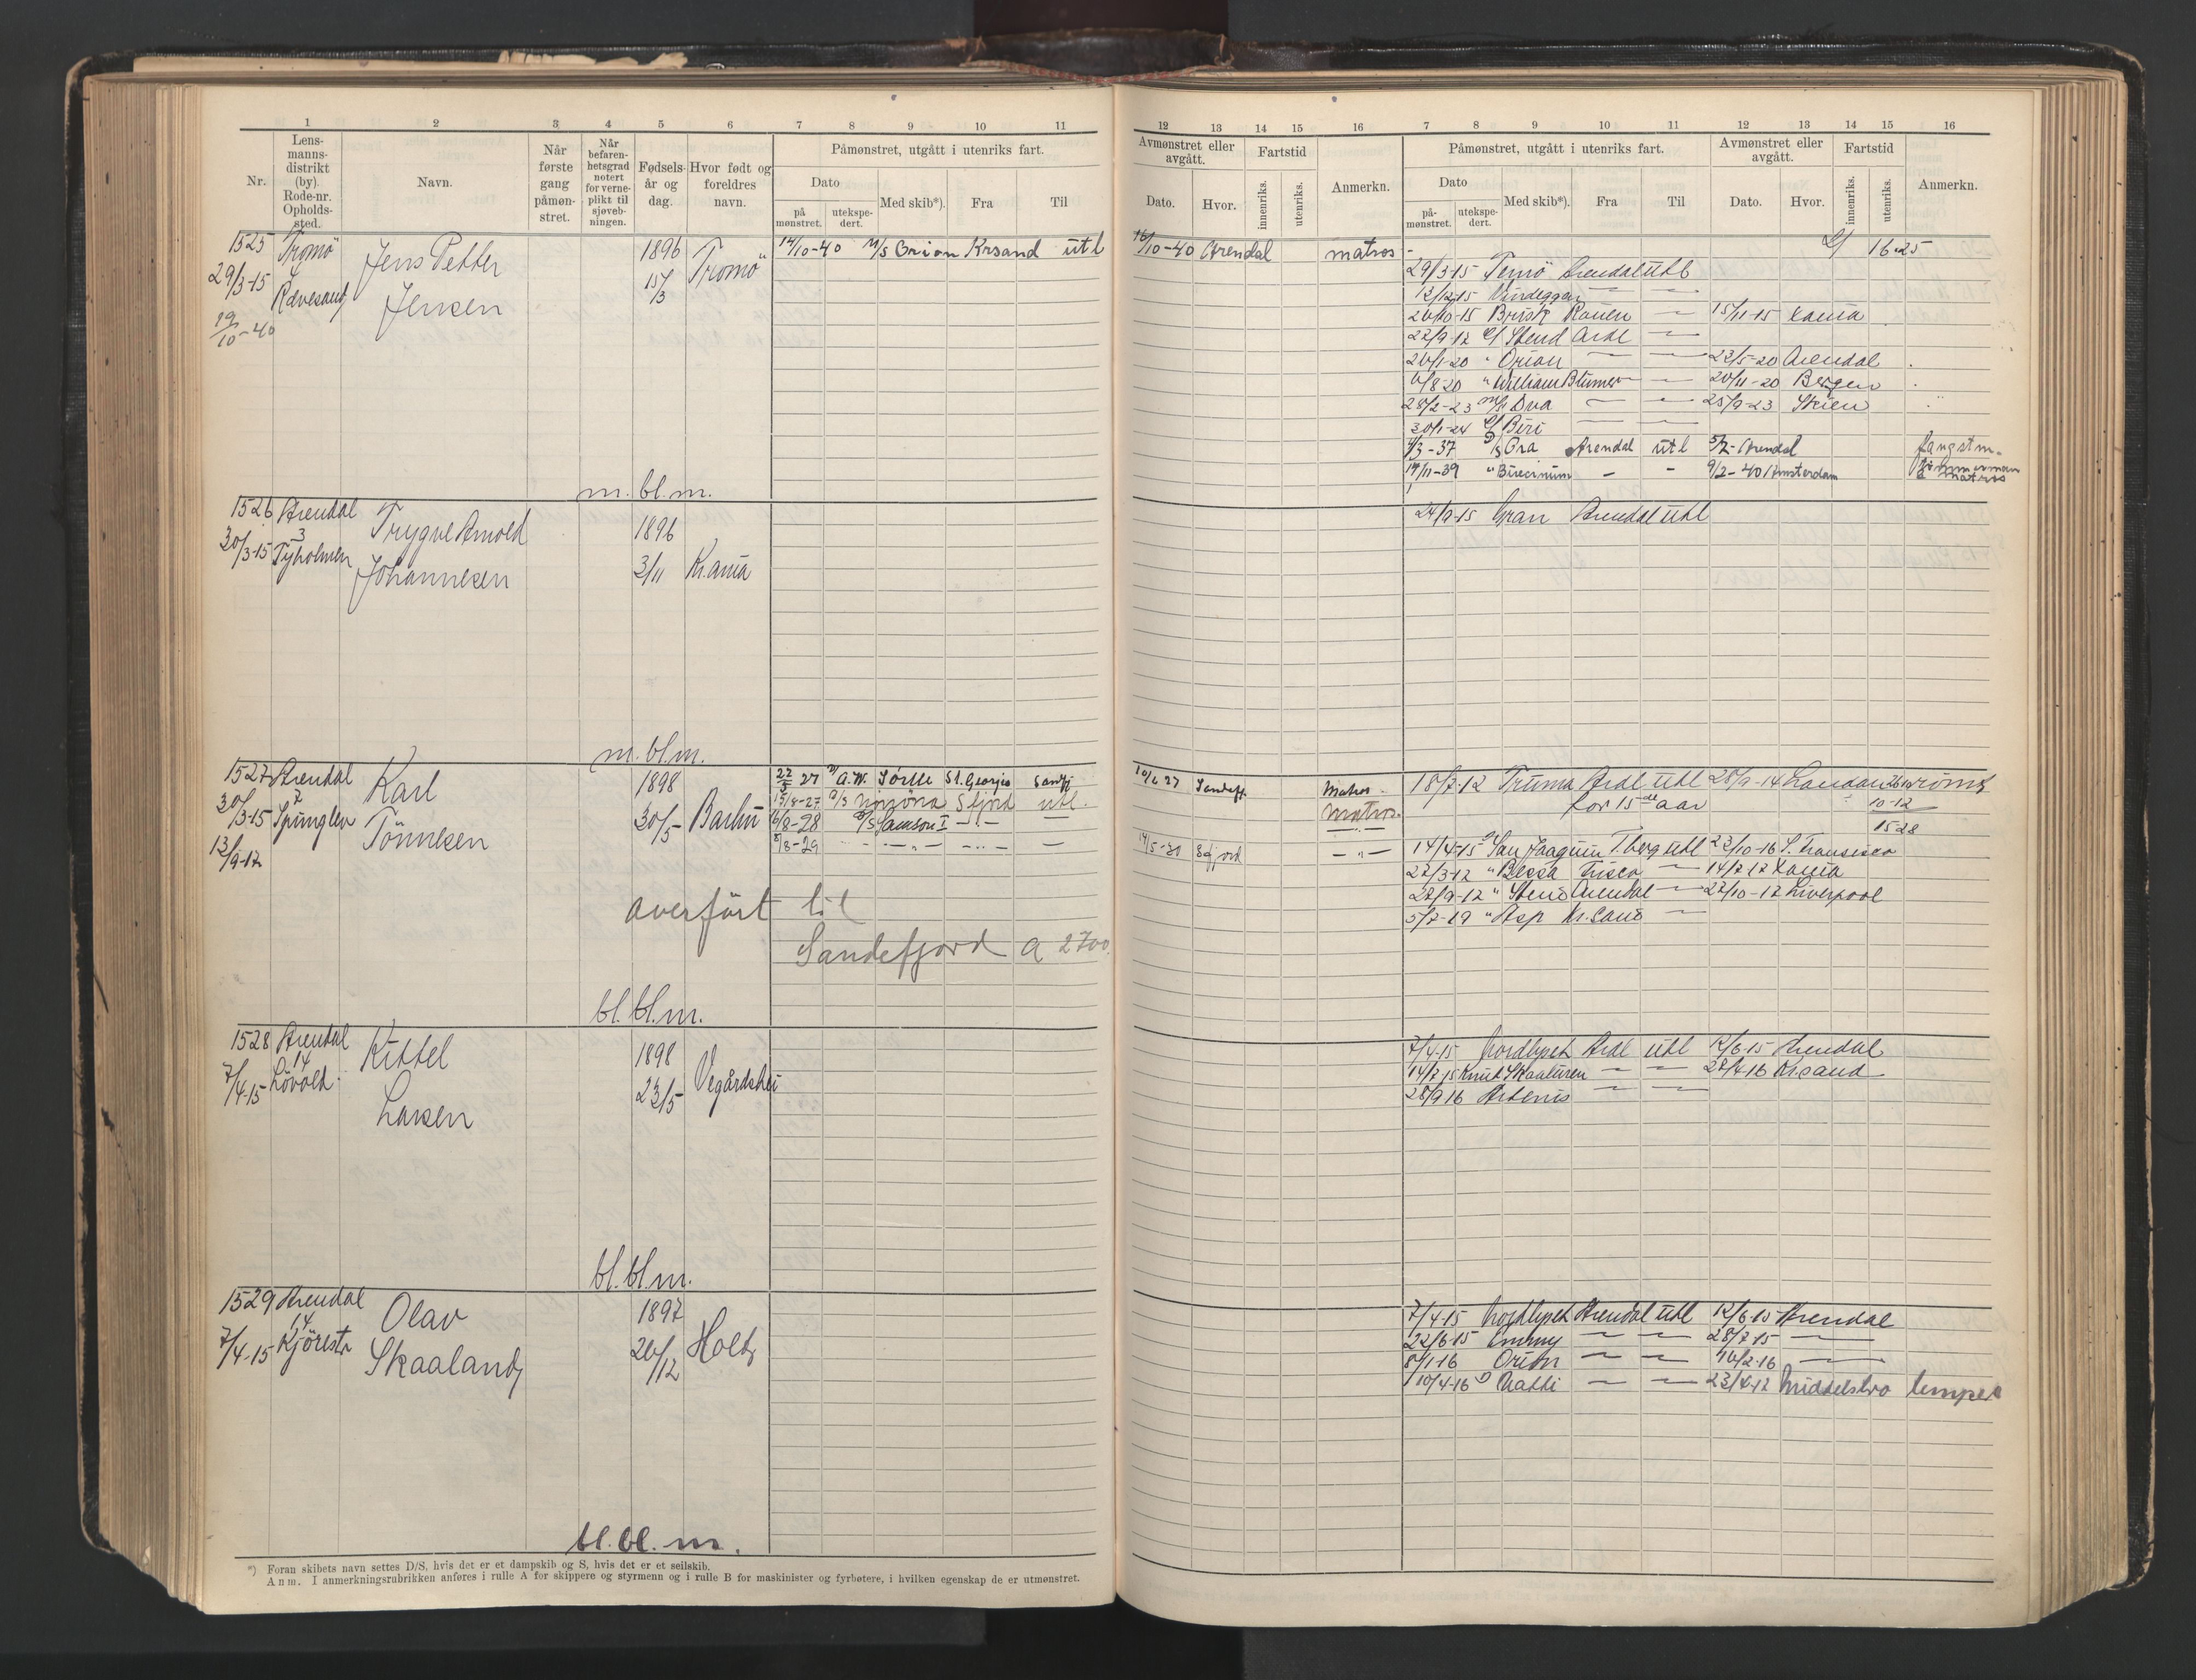 1 2 3 4 5 6 7 8 9 10 11
Nr. Lensmanns-distrikt (by). Rode-nr. Opholds-sted. Navn. Når første gang påmøn-stret. Når befaren-hetsgrad notert for verne-plikt til sjøveb-ningen. Fødsels-år og dag. Hvor født og foreldres navn. Påmønstret, utgått i utenriks fart.
Dato Med skib*). Fra Til
på mønstret. utekspe-dert.
1525 Tromö Jens Petter 1896 Tromö 14/10-40 M/S Orion Krsand utl
29/3-15 4 Jensen 15/3
Revesand
19/10-40
m. bl. m.
1526 Arendal Trygve Arnold 1896
30/3-15 3 Johannesen 3/11 Kr.ania
Tyholmen
m. bl. m.
1527 Arendal Karl 1898 22/5 27 A.W. Sørlle St. Georgia Sandfj
30/3-15 2 Tönnesen 30/5 Barbu 15/8-27 Sfjord utl.
13/9-17 6/8-28 Samson I — " —
5/8-29 — " — — " — —
overfört til
Sandefjord A 2700.
bl. bl. m.
1528 Arendal Kittel 1898 Vegårdshei
7/4-15 14 Larsen 23/5
Lövold
bl. bl. m.
1529 Arendal Olav 1897 Holt
7/4-15 14 Skaaland 26/12
Kjörestr
bl. bl. m.
*) Foran skibets navn settes D/S, hvis det er et dampskib og S, hvis det er et seilskib.
Anm. I anmerkningsrubrikken anføres i rulle A for skippere og styrmenn og i rulle B for maskinister og fyrbøtere, i hvilken egenskap de er utmønstret.
12 13 14 15 16 7 8 9 10 11 12 13 14 15 16
Avmønstret eller avgått. Fartstid Anmerkn. Påmønstret, utgått i utenriks fart. Avmønstret eller avgått. Fartstid Anmerkn.
Dato. Hvor. innenriks. utenriks. Dato Med skib*). Fra Til Dato. Hvor. innenriks. utenriks.
på-mønstret. utekspe-dert.
16/10-40 Arendal matros 16-25
29/3-15 Temö Arendal utl
12/12-15 Vindeggen — —
26/10-15 Brisk Rouen — 15/11-15 Kania
22/9-17 Stend Ardl —
26/1-20 " Orion — — 22/5-20 Arendal
6/8-20 " William Blumer — 20/11-20 Bergen
28/2-23 M/S Dva — — 25/9-23 Skien
30/1-24 Biri — —
4/3-37 Ora Arendal utl 5/7- Arendal fangstm.
14/11-39 " Bisecinum - - 9/2-40 Amsterdam tömmerman
& matros
24/9-15 Gran Arendal utl
10/6 27 Sandefj. Matros 18/7-12 Truma Ardl utl 28/9-14 London römt
for 15de aar 10-12
matros. 15-28
— " —
14/5-30 Sfjord — " — 14/4-15 San Joaquin T.berg utl 22/10-16 S. Fransisco
22/3-17 " Bessa Frisco — 14/7-17 Kania
22/9-17 " Stend Arendal — 27/10-17 Liverpool
5/7-19 " Asp Kr.sand —
7/4-15 Nordlyset Ardl utl 12/6-15 Arendal
14/7-15 Knut Skaaluren — — 27/4-16 Kr.sand
28/9-16 Artemis — —
7/4-15 Nordlyset Arendal utl 12/6-15 Arendal
22/6-15 Emmy — — 28/7-15 —
8/1-16 Orion — — 16/2-16 —
10/4-16 Natti — — 23/4-17 Middelsbro lemper